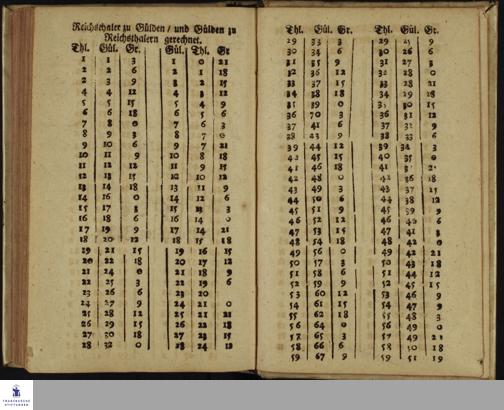 Reichsthaler zu Gülden / und Gülden zu
Reichsthalern gerechnet.
Thl. Gül. Gr. Gül. Thl. Gr
1 1 3 1 0 21
2 2 6 2 1 18
3 3 9 3 2 15
4 4 12 4 3 12
5 5 15 5 4 9
6 6 18 6 5 6
7 8 0 7 6 3
8 9 3 8 7 0
9 10 6 9 7 21
10 11 9 10 8 18
11 12 12 11 9 15
12 13 15 12 10 12
13 14 18 13 11 9
14 16 0 14 12 6
15 17 3 15 13 3
16 18 6 16 14 0
17 19 9 17 14 21
18 20 12 18 15 18
19 21 15 19 16 15
20 22 18 20 17 12
21 24 0 21 18 9
22 25 3 22 19 6
23 26 6 23 20
24 27 9 24 21 0
25 28 12 25 21 21
26 29 15 26 22 18
27 30 18 27 23 15
28 32 0 28 24 12
Thl. Gül. Gr. Gül. Thl. Gr
29 33 3 29 25 9
30 34 6 30 26 6
31 35 9 31 27 3
32 36 12 32 28 0
33 37 15 33 28 21
34 38 18 34 29 18
35 39 0 35 30 15
36 70 3 36 31 12
37 41 6 37 32 9
38 23 9 38 33 6
39 44 12 39 34 3
40 45 15 40 35 0
41 46 18 41 21
42 48 0 42 36 18
43 49 3 43 37 15
44 50 6 44 38 12
45 51 9 45 39 9
46 52 12 46 6
47 53 15 47 41 3
48 54 18 48 42 0
49 56 0 49 42 21
50 57 3 50 43 18
51 58 6 51 44 12
52 59 9 52 45 15
53 60 12 53 46 9
54 61 15 54 47 9
55 62 18 55 48 3
56 64 0 56 49 0
57 65 3 57 49 21
58 66 6 58 50 18
59 67 9 59 51 15